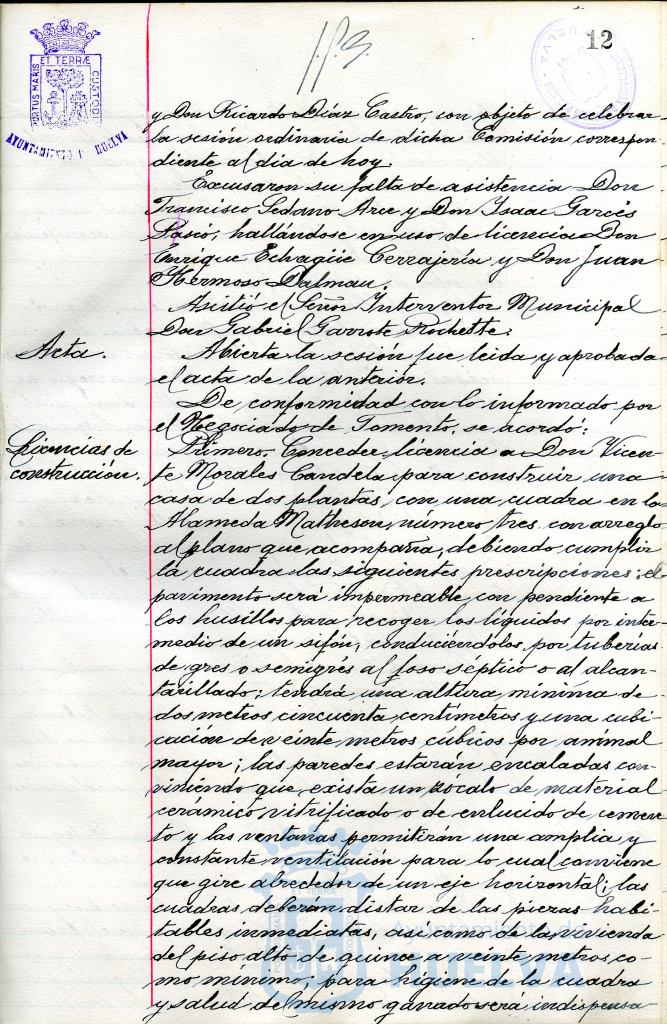 12
PORTUS MARIS ET TERRÆ CUSTODIA
AYUNTAMIENTO DE HUELVA
y Don Ricardo Díaz Castro, con objeto de celebrar
la sesión ordinaria de dicha Comisión correspon-
diente al día de hoy.
Excusaron su falta de asistencia Don
Francisco Sedano Arce y Don Isaac Garcés
Pascó, hallándose en uso de licencia Don
Enrique Echagüe Cerrajería y Don Juan
Hermoso Dalmau.
Asistió el Señor Interventor Municipal
Don Gabriel Garrote Rochette.
Acta.
Abierta la sesión fue leida y aprobada
el acta de la anterior.
De conformidad con lo informado por
el Negociado de Fomento, se acordó:
Licencias de
construcción.
Primero. Conceder licencia a Don Vicen-
te Morales Candela para construir una
casa de dos plantas, con una cuadra en la
Alameda Matheson, número tres con arreglo
al plano que acompaña, debiendo cumplir
la cuadra las siguientes prescripciones: el
pavimento será impermeable con pendiente a
los husillos para recoger los líquidos por inter-
medio de un sifón, conduciéndolos por tuberías
de gres o semigrés al foso septico o al alcan-
tarillado; tendrá una altura mínima de
dos metros cincuenta centímetros y una cubi-
cación de veinte metros cúbicos por animal
mayor; las paredes estarán encaladas con-
viniendo que exista un zócalo de material
cerámico vitrificado o de enlucido de cemen-
to y las ventanas permitirán una amplia y
constante ventilación para lo cual conviene
que gire alrededor de un eje horizontal; las
cuadras deberán distar de las piezas habi-
tables inmediatas, asi como de la vivienda
del piso alto de quince a veinte metros co-
mo mínimo; para higiene de la cuadra
y salud del mismo ganado será indispensa
Ayuntamiento de
HUELVA